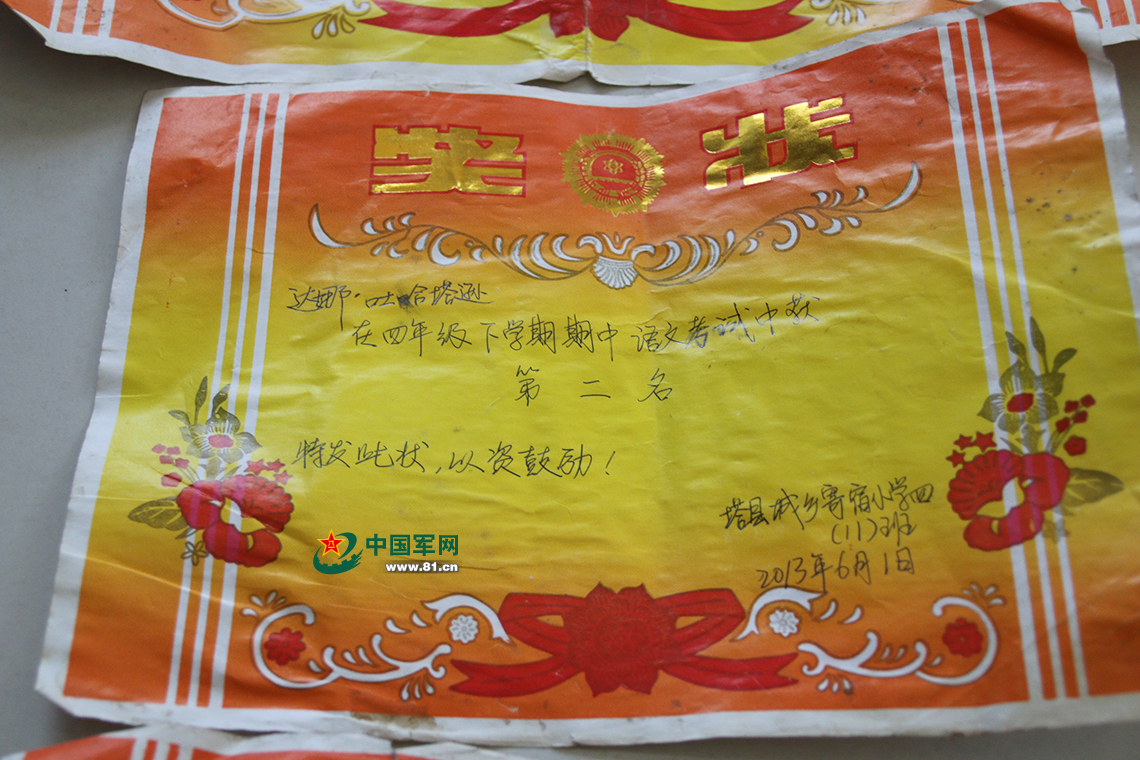 奖状
达娜·吐合塔逊
在四年级下学期期中语文考试中获
第二名
特发此状，以资鼓励！
塔县城乡寄宿小学四
(11)班
2013年6月1日
中国军网
www.81.cn